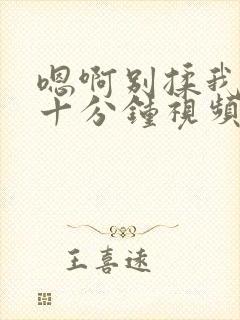 嗯啊别揉我
十分鍾視頻
王喜遠